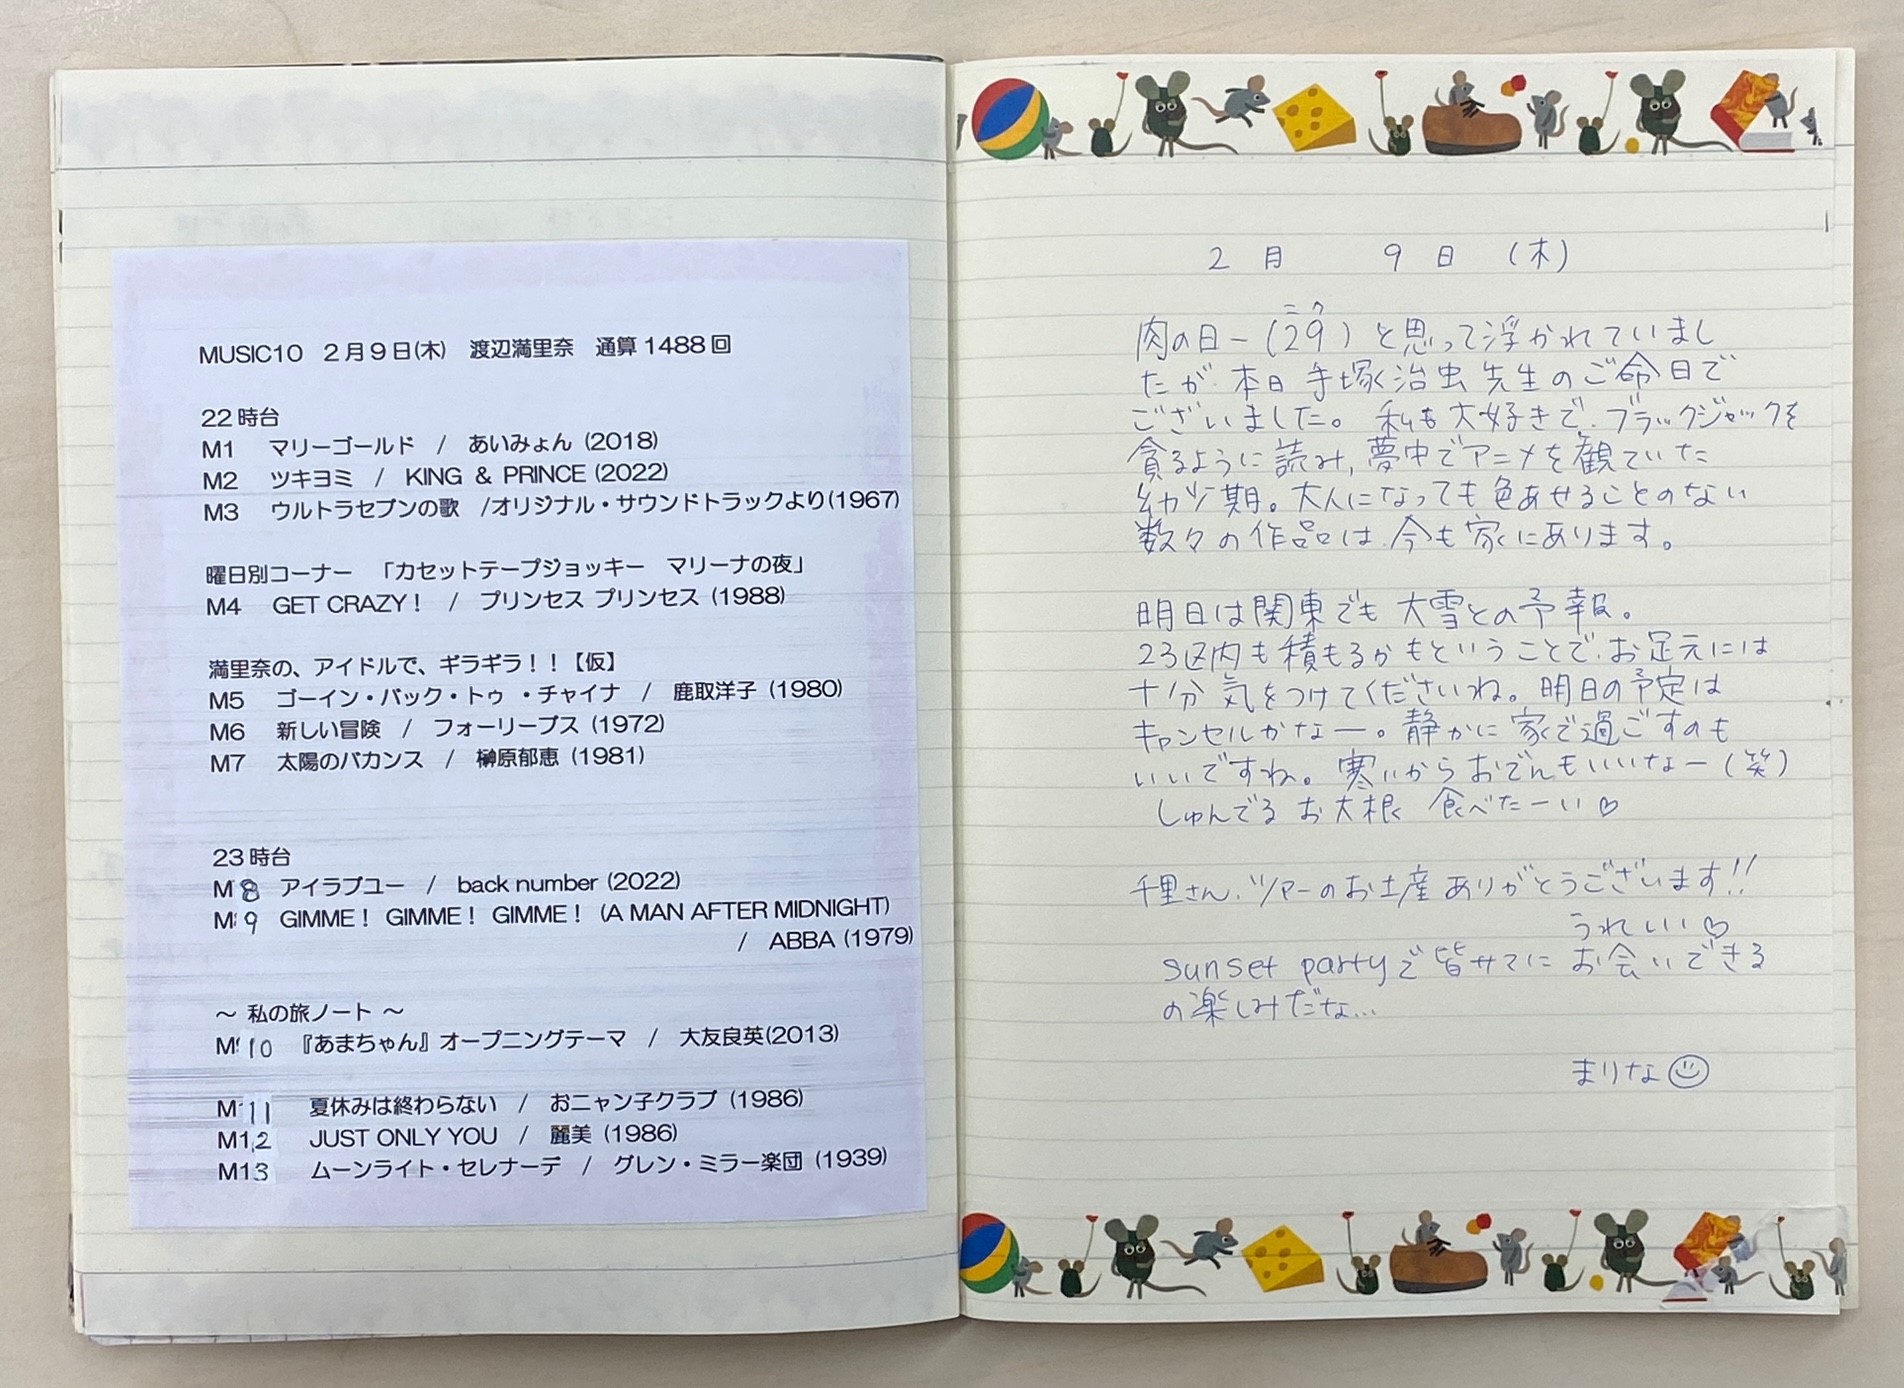 MUSIC10 2月9日(木) 渡辺満里奈 通算1488回
22時台
M1 マリーゴールド / あいみょん (2018)
M2 ツキヨミ / KING & PRINCE (2022)
M3 ウルトラセブンの歌 /オリジナル・サウンドトラックより(1967)
曜日別コーナー 「カセットテープジョッキー マリーナの夜」
M4 GET CRAZY! / プリンセス プリンセス (1988)
満里奈の、アイドルで、ギラギラ!!【仮】
M5 ゴーイン・バック・トゥ・チャイナ / 鹿取洋子 (1980)
M6 新しい冒険 / フォーリーブス (1972)
M7 太陽のバカンス / 榊原郁恵 (1981)
23時台
M8 アイラブユー / back number (2022)
M9 GIMME! GIMME! GIMME! (A MAN AFTER MIDNIGHT)
/ ABBA (1979)
～ 私の旅ノート ～
M10 『あまちゃん』オープニングテーマ / 大友良英(2013)
M11 夏休みは終わらない / おニャン子クラブ (1986)
M12 JUST ONLY YOU / 麗美 (1986)
M13 ムーンライト・セレナーデ / グレン・ミラー楽団 (1939)
2月 9日 (木)
ニク
肉の日ー(29)と思って浮かれていまし
たが、本日手塚治虫先生のご命日で
ございました。私も大好きで、ブラックジャックを
貪るように読み、夢中でアニメを観ていた
幼少期。大人になっても色あせることのない
数々の作品は、今も家にあります。
明日は関東でも大雪との予報。
23区内も積もるかもということで、お足元には
十分気をつけてくださいね。明日の予定は
キャンセルかなー。静かに家で過ごすのも
いいですね。寒いからおでんもいいなー(笑)
しゅんでるお大根 食べたーい♡
千里さん、ツアーのお土産ありがとうございます!!
うれしい♡
sunset partyで皆サマにお会いできる
の楽しみだな…
まりな☺